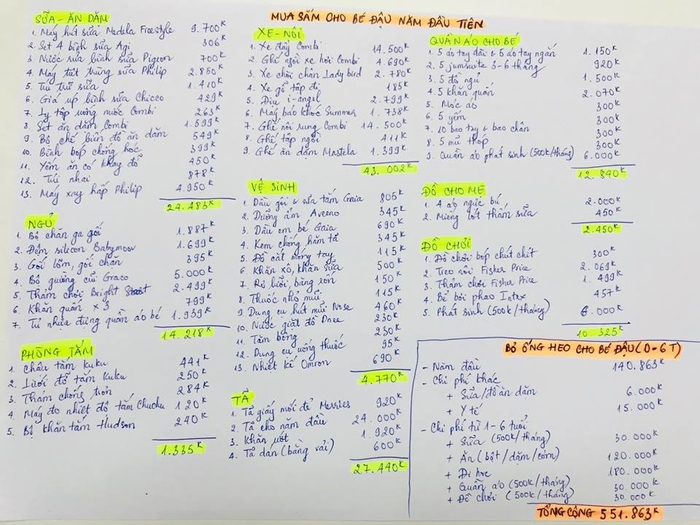 MUA SẮM CHO BÉ ĐẬU NĂM ĐẦU TIÊN
SỮA - ĂN DẶM
1. Máy hút sữa Medela Freestyle 9.700K
2. Set 4 bình sữa Agi 306K
3. Nước rửa bình sữa Pigeon 700K
4. Máy tiệt trùng sữa Philip 2.850K
5. Túi trữ sữa 1.410K
6. Giá úp bình sữa Chicco 429K
7. Ly tập uống nước Combi 263K
8. Set ăn dặm Combi 1.599K
9. Bộ chế biến đồ ăn dặm 549K
10. Bình bóp chống hóc 399K
11. Yếm ăn có khay đổ 450K
12. Túi nhai 878K
13. Máy xay hấp Philip 4.950K
24.483K
NGỦ
1. Bộ chăn ga gối 1.887K
2. Đệm silicon Babymoov 1.699K
3. Gối lõm, gối chăn 395K
4. Bộ quây cũi Graco 5.000K
5. Thảm chơi Bright 2.499K
6. Khăn quấn x 3 799K
7. Tủ nhựa đựng quần áo bé 1.939K
14.218K
PHÒNG TẮM
1. Chậu tắm kuku 441K
2. Lưới đỡ tắm kuku 250K
3. Thảm chống trơn 284K
4. Máy đo nhiệt độ tắm Chuchu 120K
5. Bộ khăn tắm Hudson 240K
1.335K
XE - NÔI
1. Xe đẩy Combi 14.500K
2. Ghế ngồi xe hơi Combi 4.690K
3. Xe chòi chân Lady bird 2.780K
4. Xe gỗ tập đi 185K
5. Địu i-angel 2.799K
6. Máy báo khóc Summer 1.738K
7. Ghế nôi rung Combi 14.500K
8. Ghế tập ngồi 411K
9. Ghế ăn dặm Mastela 1.399K
43.002K
VỆ SINH
1. Dầu gội & sữa tắm Gaia 805K
2. Dưỡng ẩm Aveno 345K
3. Dầu em bé Gaia 690K
4. Kem chống hăm tã 345K
5. Đồ cắt móng tay 115K
6. Khăn xô, khăn sữa 500K
7. Rơ lưỡi, băng rốn 150K
8. Thuốc nhỏ mũi 115K
9. Dụng cụ hút mũi Nose 460K
10. Nước giặt đồ Dnee 230K
11. Tăm bông 230K
12. Dụng cụ uống thuốc 95K
13. Nhiệt kế Omron 690K
4.770K
TÃ
1. Tã giấy mới đẻ Merries 920K
2. Tã cho năm đầu 24.000K
3. Khăn ướt 1.920K
4. Tã dán (bằng vải) 600K
27.440K
QUẦN ÁO CHO BÉ
1. 5 áo tay dài & 5 áo tay ngắn 1.150K
2. 5 jumsuite 3-6 tháng 920K
3. 5 đồ ngủ 1.500K
4. 5 khăn quấn 2.070K
5. Móc áo 300K
6. 5 yếm 300K
7. 10 bao tay & bao chân 300K
8. 5 mũ thóp 300K
9. Quần áo phát sinh (500K/tháng) 6.000K
12.840K
ĐỒ CHO MẸ
1. 4 áo ngực bú 2.000K
2. Miếng lót thấm sữa 450K
2.450K
ĐỒ CHƠI
1. Đồ chơi bóp chút chít 300K
2. Treo nôi Fisher Price 2.069K
3. Thảm chơi Fisher Price 1.499K
4. Bể bơi phao Intex 457K
5. Phát sinh (500K/tháng) 6.000K
10.325K
BỎ ỐNG HEO CHO BÉ ĐẬU (0-6T)
- Năm đầu 140.863K
- Chi phí khác
+ Sữa/đồ ăn dặm 6.000K
+ Y tế 15.000K
- Chi phí từ 1-6 tuổi
+ Sữa (500K/tháng) 30.000K
+ Ăn (bột/dặm/cơm) 120.000K
+ Đi học 180.000K
+ Quần áo (500K/tháng) 30.000K
+ Đồ chơi (500K/tháng) 30.000K
TỔNG CỘNG 551.863K